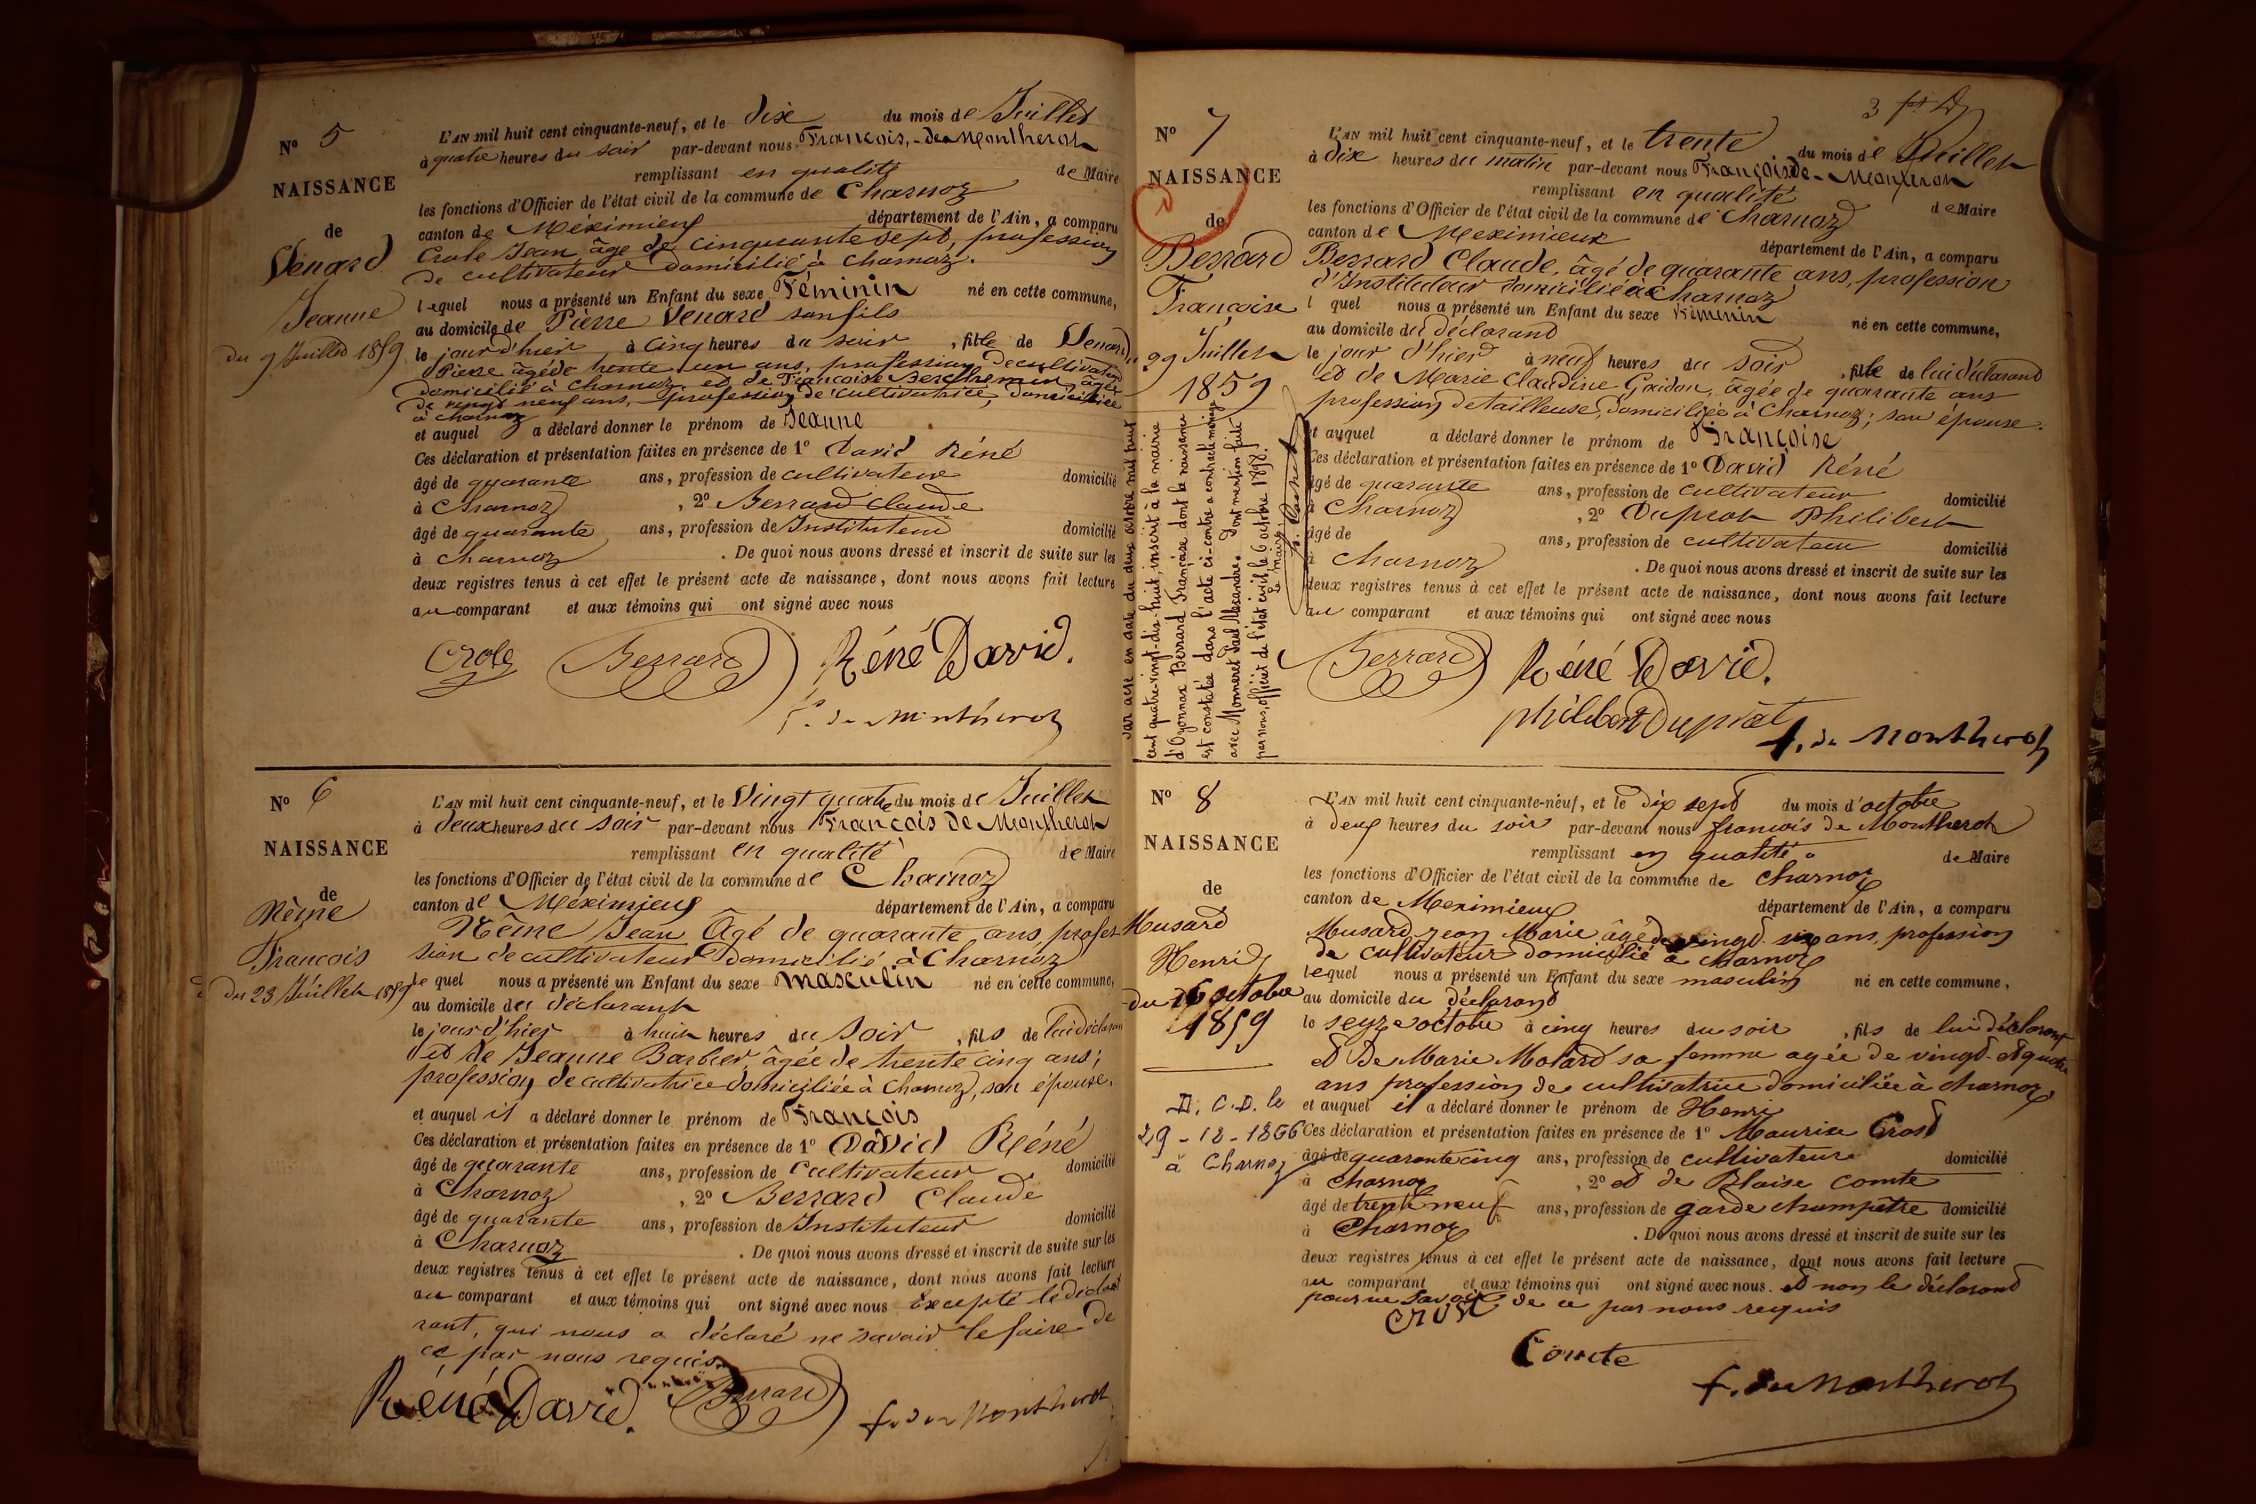 N° 5
NAISSANCE
de
Venard
Jeanne
du 9 Juillet 1859
L'AN mil huit cent cinquante-neuf, et le dix du mois de Juillet
à quatre heures du soir par-devant nous François, de Montherot
remplissant en qualité de Maire
les fonctions d'Officier de l'état civil de la commune de Charnoz
canton de Méximieux département de l'Ain, a comparu
Crole Jean, âgé de cinquante sept, profession
de cultivateur domicilié à Charnoz.
lequel nous a présenté un Enfant du sexe Féminin né en cette commune,
au domicile de Pierre Venard son fils
le jour d'hier à cinq heures du soir, fille de Venard
Pierre âgé de trente un ans, profession de cultivateur
domicilié à Charnoz et de Françoise âgée
de vingt neuf ans, profession de cultivatrice, domiciliée
à Charnoz
et auquel a déclaré donner le prénom de Jeanne
Ces déclaration et présentation faites en présence de 1° David Réné
âgé de quarante ans, profession de cultivateur domicilié
à Charnoz, 2° Berrard Claude
âgé de quarante ans, profession de Instituteur domicilié
à Charnoz. De quoi nous avons dressé et inscrit de suite sur les
deux registres tenus à cet effet le présent acte de naissance, dont nous avons fait lecture
au comparant et aux témoins qui ont signé avec nous
Crole Berrard Réné David.
f. de Montherot
N° 6
NAISSANCE
de
Néme
François
du 23 Juillet 1859
L'AN mil huit cent cinquante-neuf, et le Vingt quatre du mois de Juillet
à deux heures du soir par-devant nous François de Montherot
remplissant en qualité de Maire
les fonctions d'Officier de l'état civil de la commune de Charnoz
canton de Méximieux département de l'Ain, a comparu
Néme Jean Âgé de quarante ans profes
sion de cultivateur domicilié à Charnoz
le quel nous a présenté un Enfant du sexe masculin né en cette commune,
au domicile du déclarant
le jour d'hier à huit heures du soir, fils de lui déclarant
et de Jeanne Barbier, âgée de trente cinq ans;
profession de cultivatrice domiciliée à Charnoz, son épouse.
et auquel il a déclaré donner le prénom de François
Ces déclaration et présentation faites en présence de 1° David Réné
âgé de quarante ans, profession de cultivateur domicilié
à Charnoz, 2° Berrard Claude
âgé de quarante ans, profession de Instituteur domicilié
à Charnoz. De quoi nous avons dressé et inscrit de suite sur les
deux registres tenus à cet effet le présent acte de naissance, dont nous avons fait lecture
au comparant et aux témoins qui ont signé avec nous Excepté le décla
rant, qui nous a déclaré ne savoir le faire de
ce par nous requis.
Réné David. Berrard f. de Montherot
N° 7
NAISSANCE
de
Berrard
Françoise
29 Juillet
1859
Par acte en date du deux octobre mil huit
cent quatre-vingt-dix-huit, inscrit à la mairie
d'Oyonnax Berrard Françoise dont la naissance
est constatée dans l'acte ci-contre a contracté mariage
avec Monneret Paul Alexandre. Dont mention faite
par nous, officier de l'état civil, le 6 octobre 1898.
Le maire,
L'AN mil huit cent cinquante-neuf, et le trente du mois de Juillet
à dix heures du matin par-devant nous François de Montherot
remplissant en qualité de Maire
les fonctions d'Officier de l'état civil de la commune de Charnoz
canton de Meximieux département de l'Ain, a comparu
Berrard Claude, âgé de quarante ans, profession
d'Instituteur domicilié à Charnoz
l quel nous a présenté un Enfant du sexe Féminin né en cette commune,
au domicile du déclarand
le jour d'hier à neuf heures du soir, fille de lui déclarand
et de Marie Claudine Gaidon, âgée de quarante ans
profession de tailleuse, domiciliée à Charnoz; son épouse.
et auquel a déclaré donner le prénom de Françoise
Ces déclaration et présentation faites en présence de 1° David Réné
âgé de quarante ans, profession de cultivateur domicilié
à Charnoz, 2° Duprat Philibert
âgé de ans, profession de cultivateur domicilié
à Charnoz. De quoi nous avons dressé et inscrit de suite sur les
deux registres tenus à cet effet le présent acte de naissance, dont nous avons fait lecture
au comparant et aux témoins qui ont signé avec nous
Berrard Réné David.
philibert Duprat f. de Montherot
N° 8
NAISSANCE
de
Musard
Henri
du 16 octobre
1859
D.C.D. le
29-12-1866
à Charnoz
L'AN mil huit cent cinquante-neuf, et le dix sept du mois d'octobre
à deux heures du soir par-devant nous françois de Montherot
remplissant en qualité de Maire
les fonctions d'Officier de l'état civil de la commune de Charnoz
canton de Meximieux département de l'Ain, a comparu
Musard jean Marie âgé de vingt six ans profession
de cultivateur domicilié à Charnoz
lequel nous a présenté un Enfant du sexe masculin né en cette commune,
au domicile du déclarand
le seyze octobre à cinq heures du soir, fils de lui déclarant
et de Marie Molard sa femme agée de vingt et quatre
ans profession de cultivatrice domiciliée à charnoz
et auquel il a déclaré donner le prénom de Henri
Ces déclaration et présentation faites en présence de 1° Maurice Crost
âgé de quarante cinq ans, profession de cultivateur domicilié
à Charnoz, 2° et de Blaise comte
âgé de trente neuf ans, profession de garde champêtre domicilié
à Charnoz. De quoi nous avons dressé et inscrit de suite sur les
deux registres tenus à cet effet le présent acte de naissance, dont nous avons fait lecture
au comparant et aux témoins qui ont signé avec nous. et non le déclarand
pour ne savoir de ce par nous requis
Crost
Comte
f. de Montherot